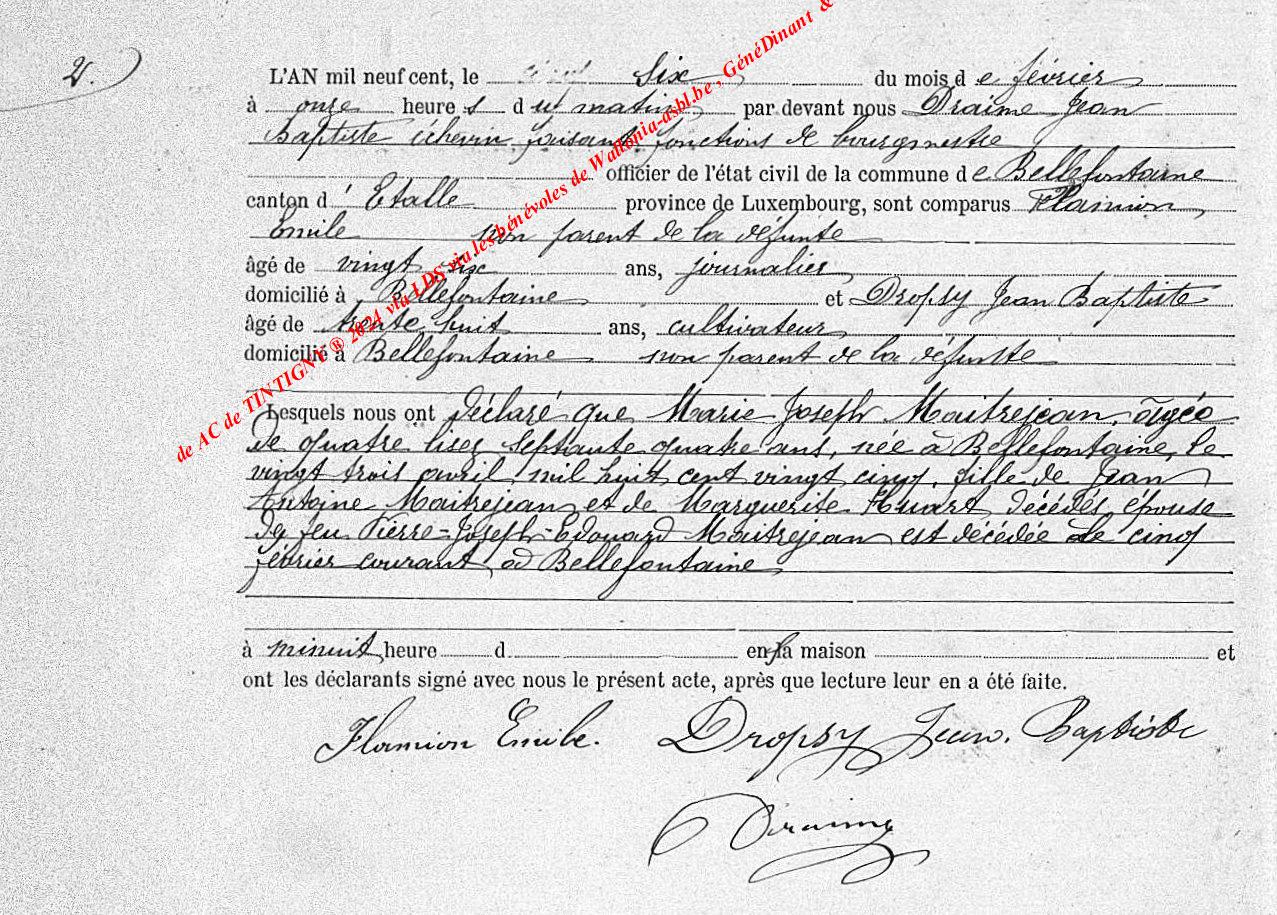 2.
L'AN mil neuf cent, le six du mois de février
à onze heures du matin par devant nous Draime Jean
Baptiste échevin faisant fonctions de bourgmestre
officier de l'état civil de la commune de Bellefontaine
canton d'Etalle province de Luxembourg, sont comparus Flamion
Emile non parent de la défunte
âgé de vingt six ans, journalier
domicilié à Bellefontaine et Dropsy Jean Baptiste
âgé de trente huit ans, cultivateur
domicilié à Bellefontaine non parent de la défunte
Lesquels nous ont déclaré que Marie Joseph Maitrejean, âgée
de quatre lisez septante quatre ans, née à Bellefontaine, le
vingt trois avril mil huit cent vingt cinq, fille de Jean
Antoine Maitrejean et de Marguerite Huart décédés, épouse
de feu Pierre-Joseph-Edouard Maitrejean est décédée le cinq
février courant, à Bellefontaine
à minuit heure d en sa maison et
ont les déclarants signé avec nous le présent acte, après que lecture leur en a été faite.
Flamion Emile. Dropsy Jean. Baptiste
Draime
de AC de TINTIGNY ® 2024 via LDS via les bénévoles de Wallonia-asbl.be , GénéDinant &